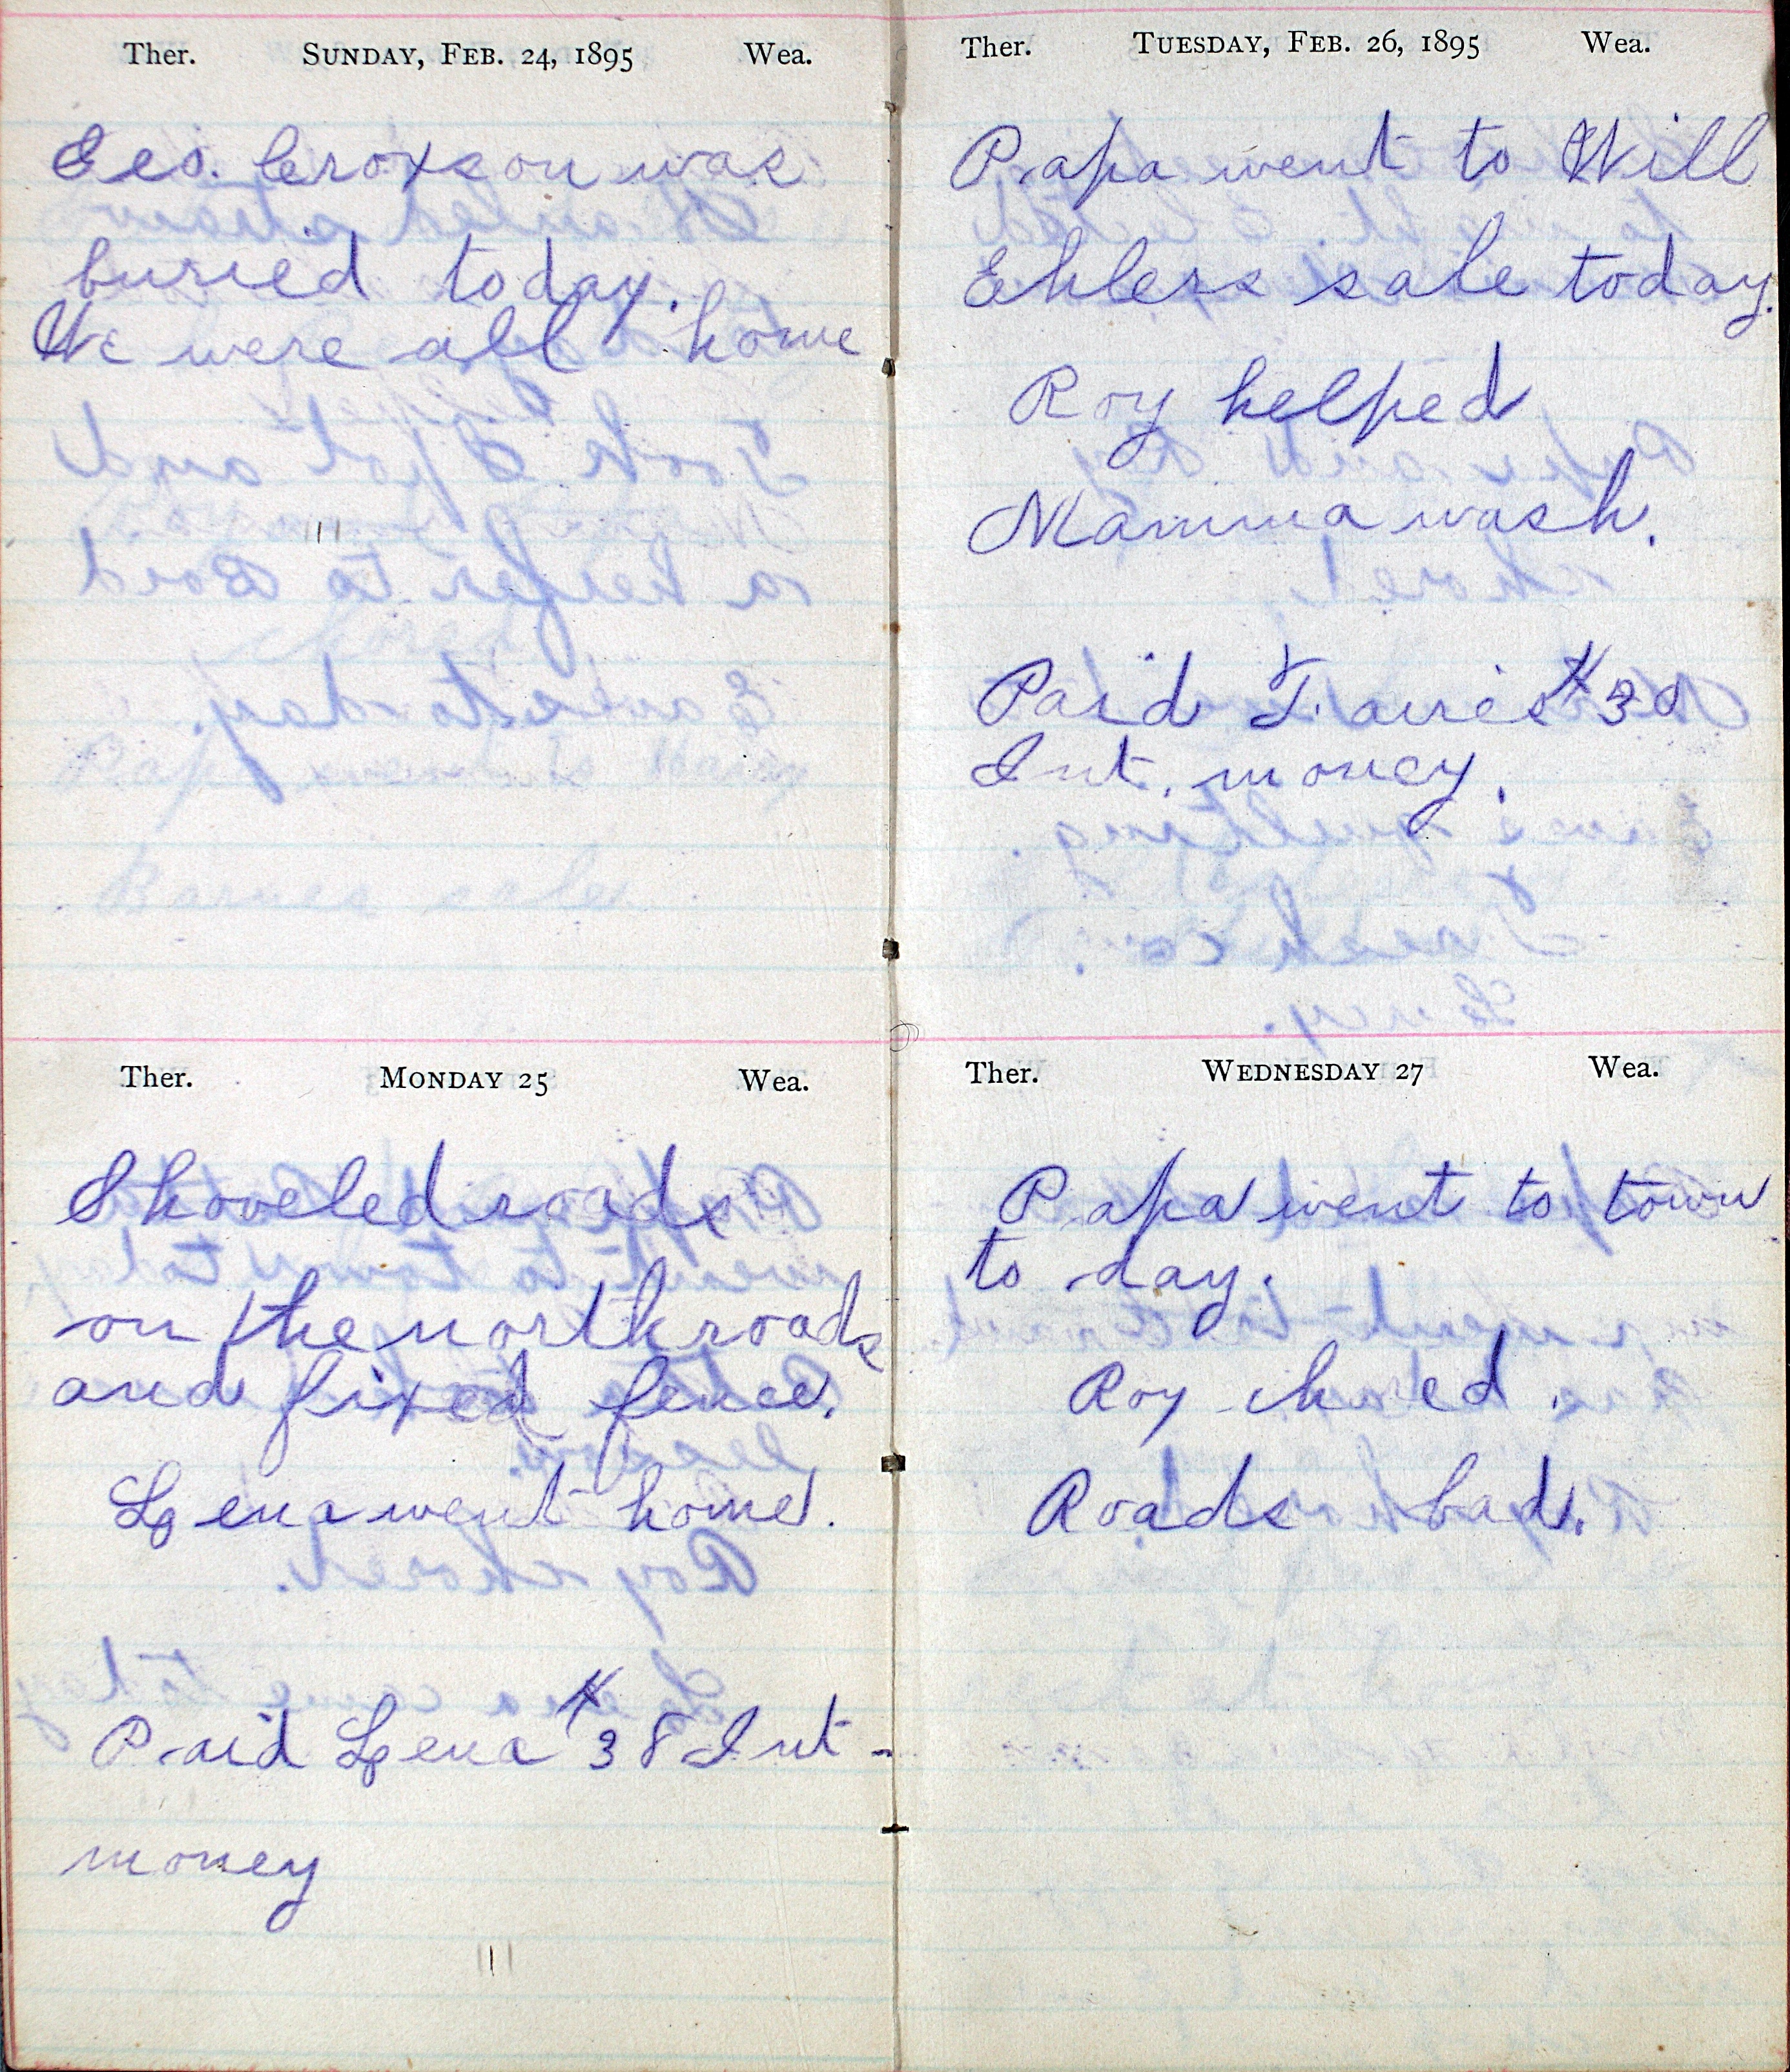 Ther. SUNDAY, FEB. 24, 1895 Wea.
Geo. Croxson was
buried today.
We were all home
Ther. MONDAY 25 Wea.
Shoveled roads
on the north roads
and fixed fence.
Lena went home.
Paid Lena $38 Int-
money
Ther. TUESDAY, FEB. 26, 1895 Wea.
Papa went to Will
Ehlers sale today.
Roy helped
Mamma wash.
Paid $30
Int. money.
Ther. WEDNESDAY 27 Wea.
Papa went to town
to day.
Roy chored.
Roads bad.